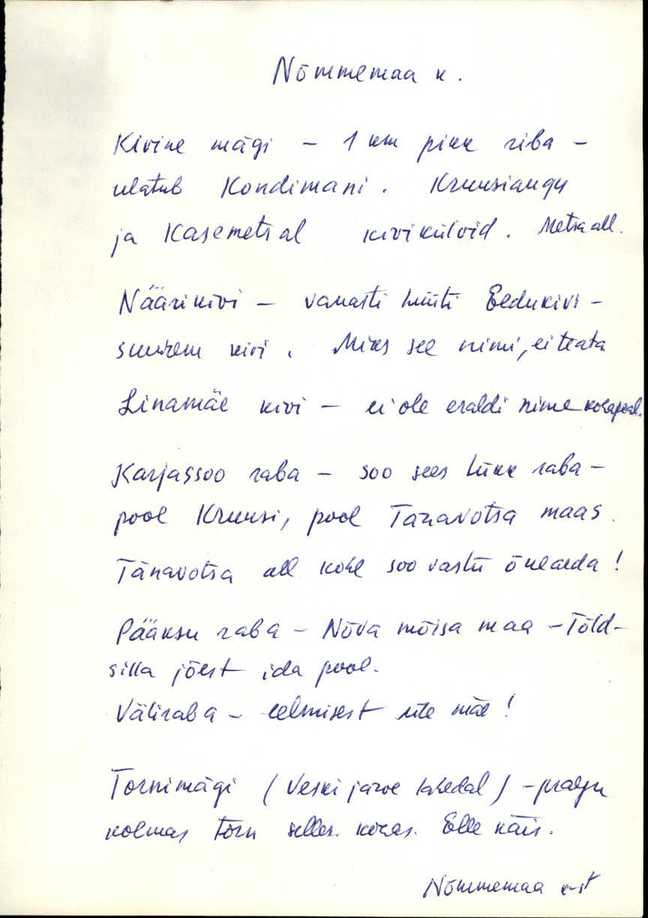 Nõmmemaa k.
Kivine mägi - 1 km pikk riba -
ulatub Kondimani. Kruusiaugu
ja Kasemetsal kivikülvid. Metsa all.
Näärikivi - vanasti hüüti Eedukivi -
suurem kivi. Miks see nimi, ei teata
Linamäe kivi - ei ole eraldi nime
Karjassoo raba - soo sees tükk raba -
pool Kruusi, pool Tänavotsa maas.
Tänavotsa all koht soo vastu õueaeda!
Pääksu raba - Nõva mõisa maa - Tõld-
silla jõest ida pool.
Väliraba - eelmisest üle mäe!
Tornimägi (Veskijärve lähedal) - praegu
kolmas torn selles kohas. Elle käis.
Nõmmemaa k-st